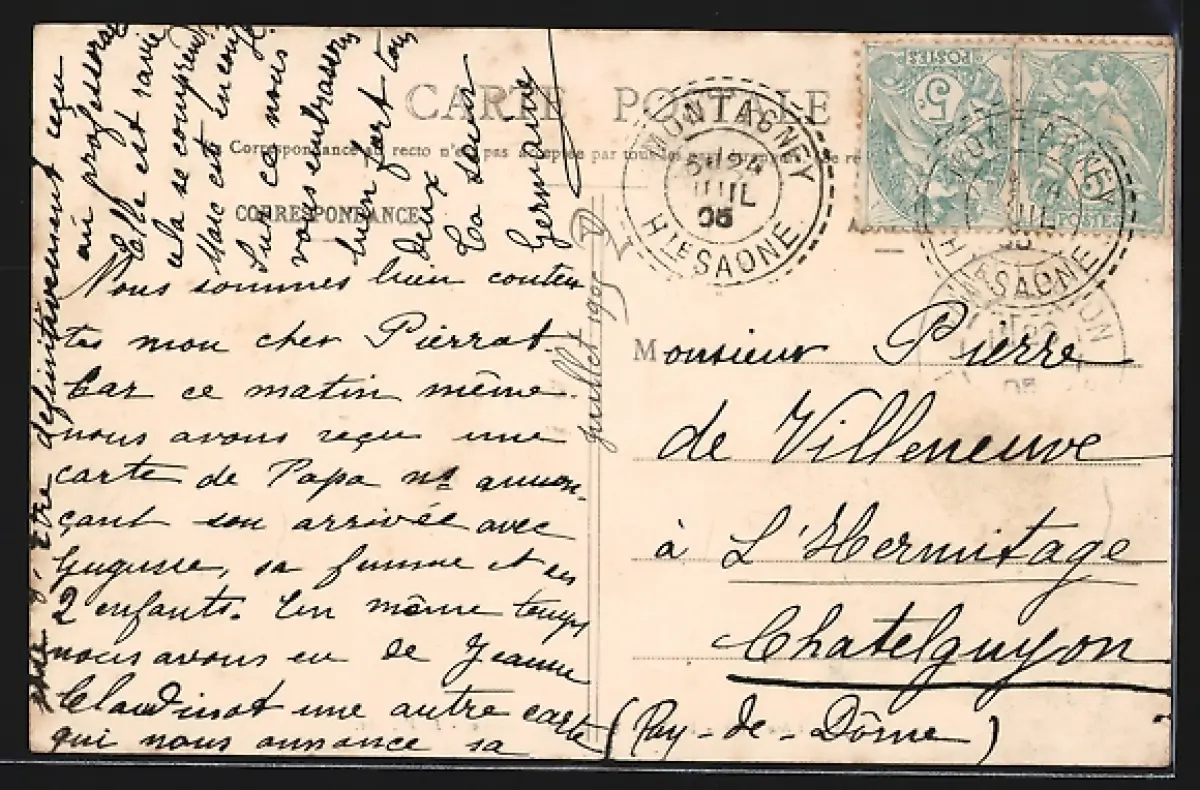 CARTE POSTALE
Correspondance au recto n'est pas acceptée par tous les
CORRESPONDANCE
Nous sommes bien conten
tes mon cher Pierrot
Car ce matin même
nous avons reçu une
carte de Papa ns annon-
çant son arrivée avec
Gugusse, sa femme et ses
2 enfants. En même temps
nous avons eu de Jeanne
Claudinot une autre carte
qui nous annonce sa
être définitivement reçu
au professorat
Elle est ravie
cela se comprend
Marc est encore
Sur ce nous
vous embrassons
bien fort tous
deux
Ta sœur
Germaine
juillet 1905
MONTAGNEY
6H 24
JUIL
05
HTE SAONE
5
POSTES
POSTES
MONTAGNEY
HTE SAONE
05
Monsieur Pierre
de Villeneuve
à L'Hermitage
Chatelguyon
(Puy-de-Dôme)